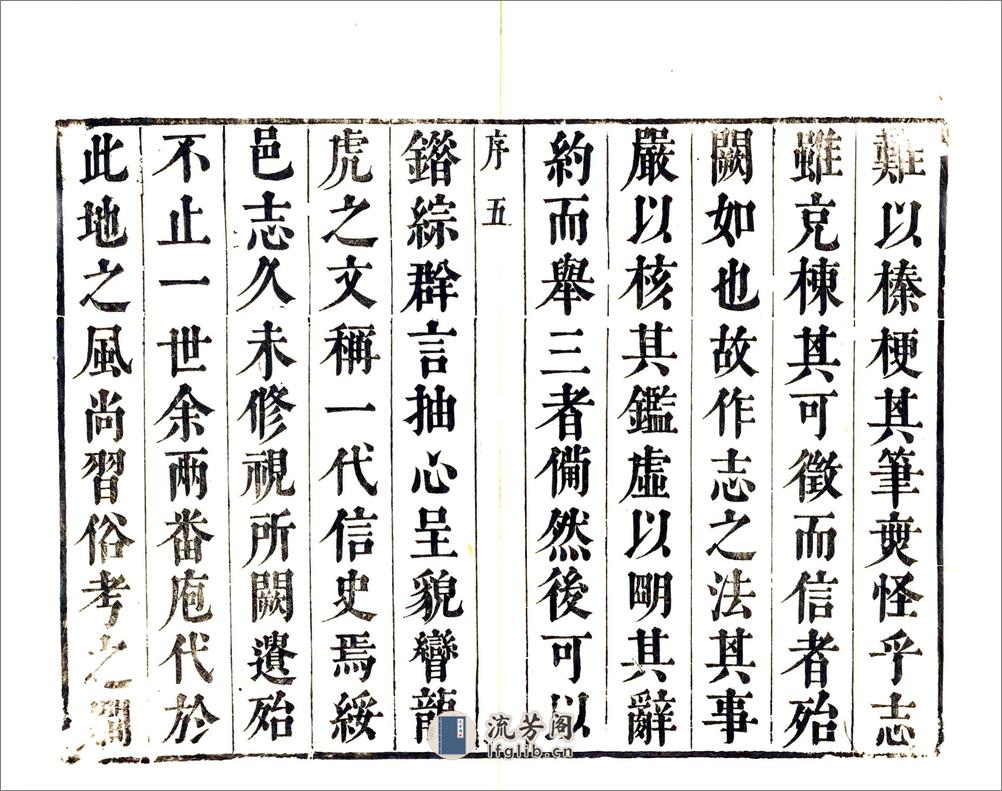 難以榛梗其筆奭怪乎志
雖充棟其可徵而信者殆
闕如也故作志之法其事
嚴以核其鑑虛以明其辭
約而舉三者備然後可以
序五
錯綜群言抽心呈貌轡龍
虎之文稱一代信史焉綏
邑志久未修視所闕遺殆
不止一世余兩番庖代於
此地之風尚習俗考之
流芳阁
lfglib.cn